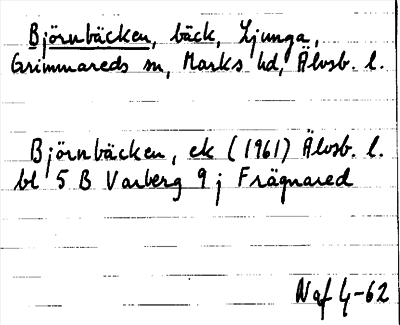 Björnbäcken, bäck, Ljunga,
Grimmareds sn, Marks hd, Älvsb. l.
Björnbäcken, ek (1961) Älvsb. l.
bl 5 B Varberg 9 j Frägnared
Naf 4-62